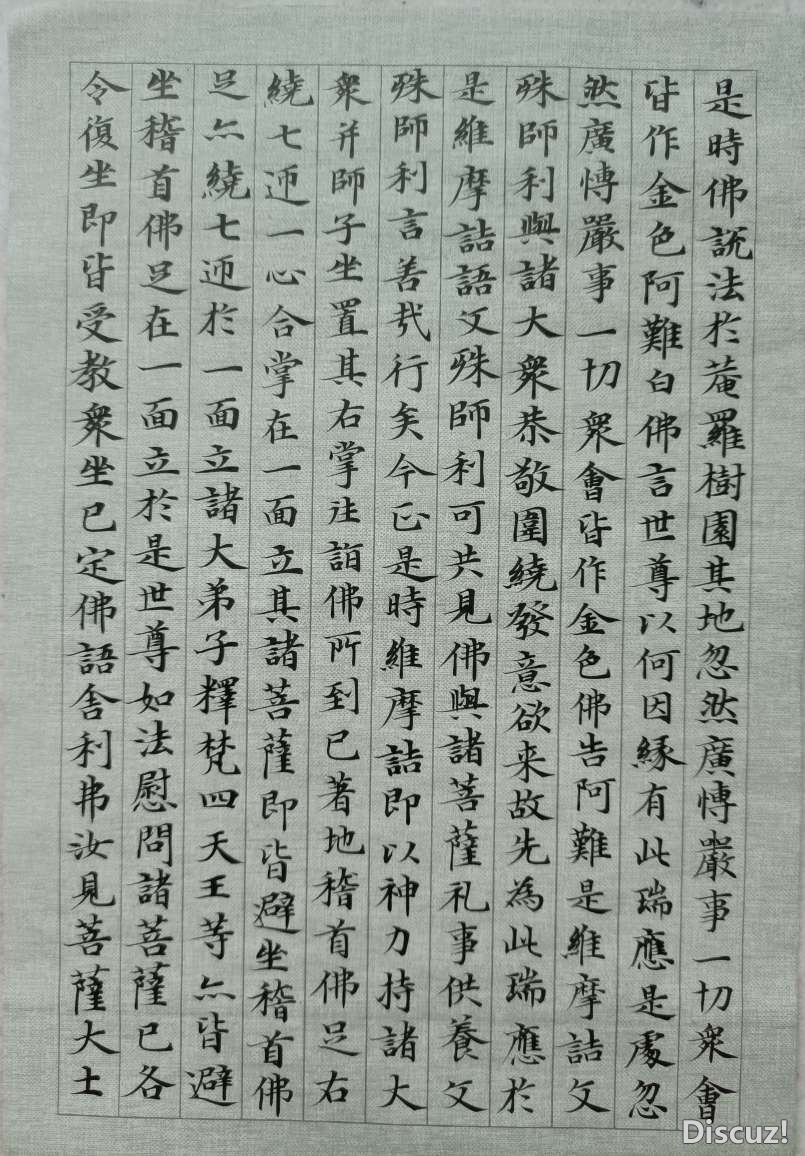 是時佛説法於菴羅樹園其地忽然廣愽嚴事一切衆會
皆作金色阿難白佛言世尊以何因緣有此瑞應是處忽
然廣愽嚴事一切衆會皆作金色佛告阿難是維摩詰文
殊師利與諸大衆恭敬圍繞發意欲来故先為此瑞應於
是維摩詰語文殊師利可共見佛與諸菩薩礼事供養文
殊師利言善哉行矣今正是時維摩詰即以神力持諸大
衆并師子坐置其右掌往詣佛所到已著地稽首佛足右
繞七迊一心合掌在一面立其諸菩薩即皆避坐稽首佛
足亦繞七迊於一面立諸大弟子釋梵四天王等亦皆避
坐稽首佛足在一面立於是世尊如法慰問諸菩薩已各
令復坐即皆受教衆坐已定佛語舎利弗汝見菩薩大士
Discuz!